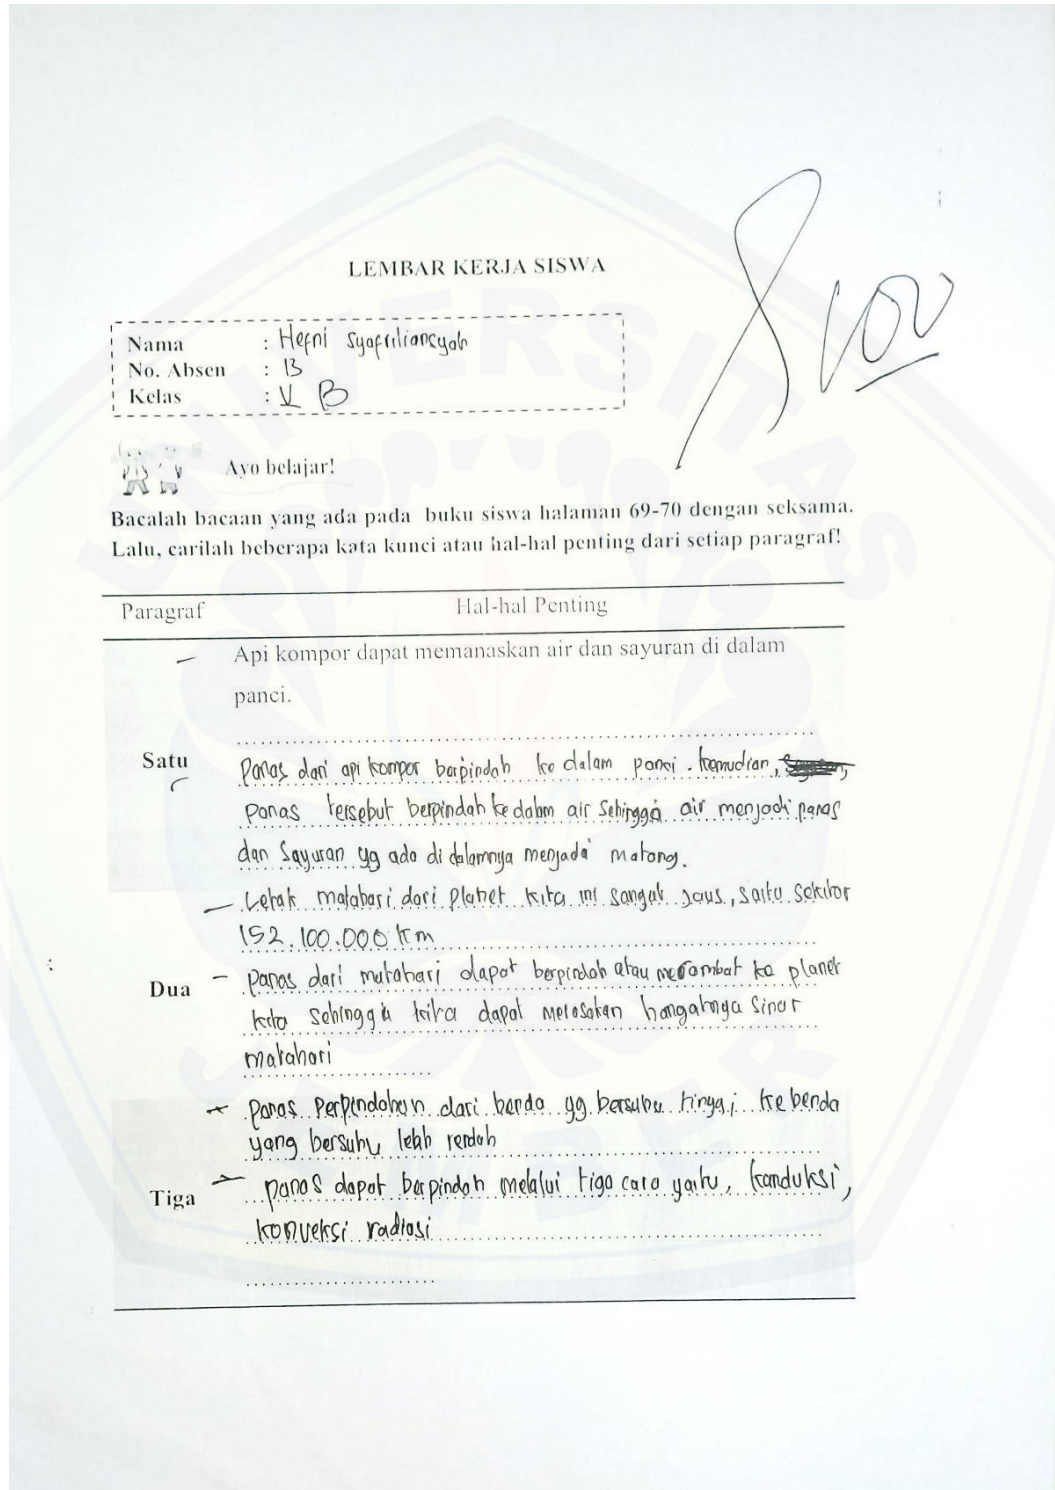 LEMBAR KERJA SISWA
100
Nama : Hefni Syafriliansyah
No. Absen : 13
Kelas : V B
Ayo belajar!
Bacalah bacaan yang ada pada buku siswa halaman 69-70 dengan seksama.
Lalu, carilah beberapa kata kunci atau hal-hal penting dari setiap paragraf!
Paragraf Hal-hal Penting
Api kompor dapat memanaskan air dan sayuran di dalam
panci.
Satu Panas dari api kompor berpindah ke dalam panci. kemudian,
panas tersebut berpindah ke dalam air sehingga air menjadi panas
dan Sayuran yg ada di dalamnya menjadi matang.
- Letak matahari dari planet kita ini sangat , sekitar
152.100.000 km
Dua - panas dari matahari dapat berpindah atau merambat ke planet
kita sehingga kita dapat merasakan hangatnya Sinar
matahari
- panas Perpindahan dari benda yg bersuhu ke benda
yang bersuhu lebih rendah
Tiga - panas dapat berpindah melalui tiga cara yaitu, konduksi,
konveksi radiasi
UNIVERSITAS
JEMBER